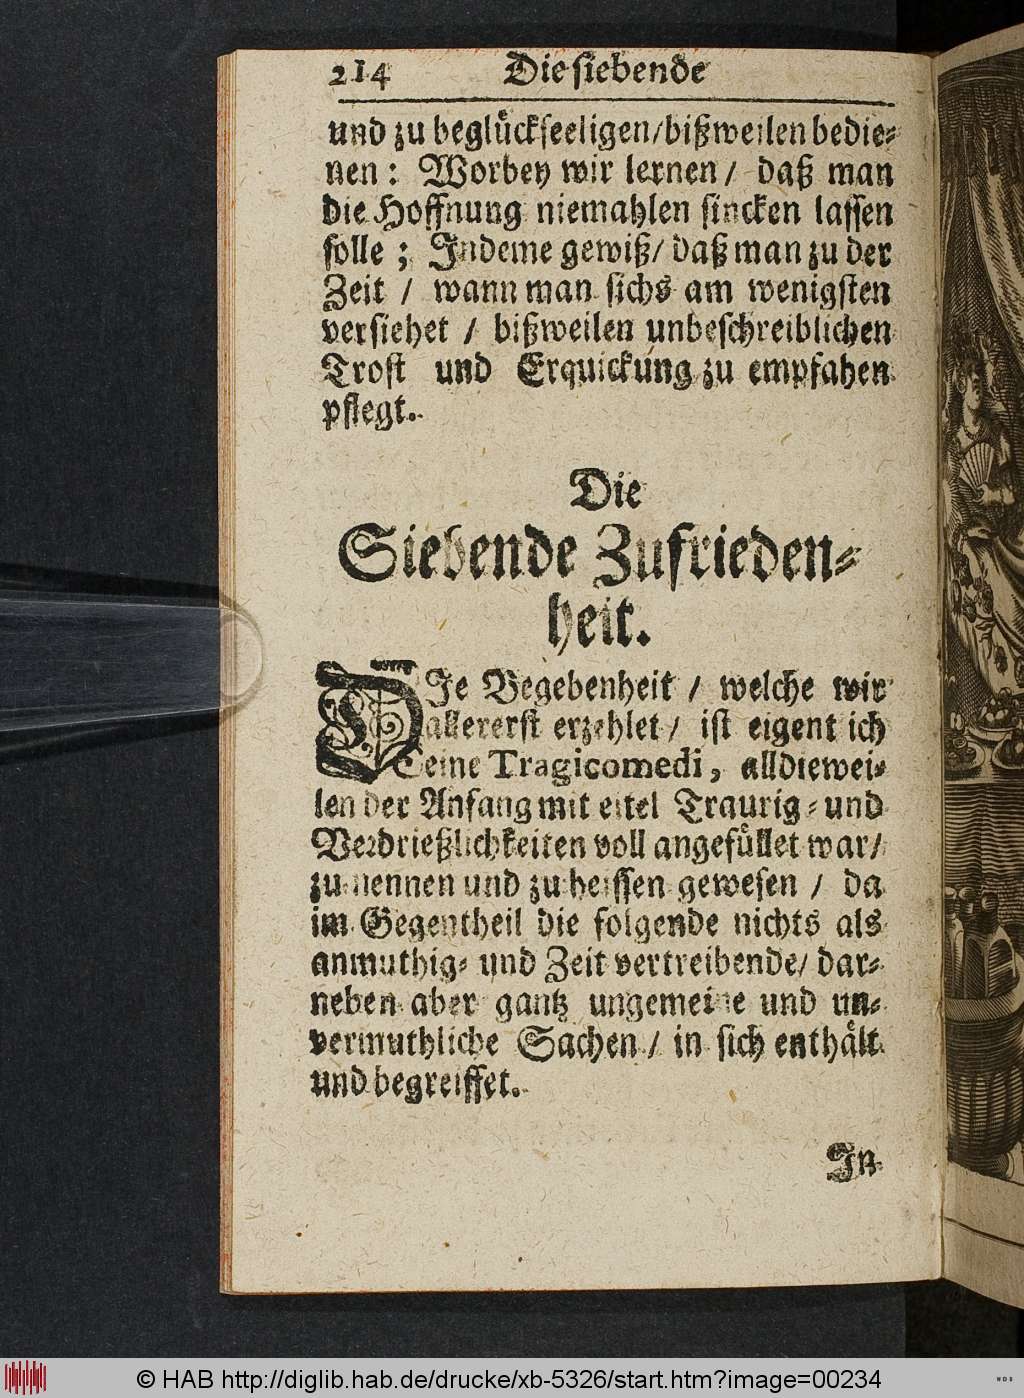 214 Die siebende
und zu beglückseeligen/bißweilen bedie-
nen: Worbey wir lernen / daß man
die Hoffnung niemahlen sincken lassen
solle ; Indeme gewiß/ daß man zu der
Zeit / wann man sichs am wenigsten
versiehet / bißweilen unbeschreiblichen
Trost und Erquickung zu empfahen
pflegt.
Die
Siebende Zufrieden-
heit.
DIe Begebenheit / welche wir
allererst erzehlet / ist eigentlich
eine Tragicomedi, alldiewei-
len der Anfang mit eitel Traurig- und
Verdrießlichkeiten voll angefüllet war/
zu nennen und zu heissen gewesen / da
im Gegentheil die folgende nichts als
anmuthig- und Zeit vertreibende/ dar-
neben aber gantz ungemeine und un-
vermuthliche Sachen / in sich enthält
und begreiffet.
In
© HAB http://diglib.hab.de/drucke/xb-5326/start.htm?image=00234